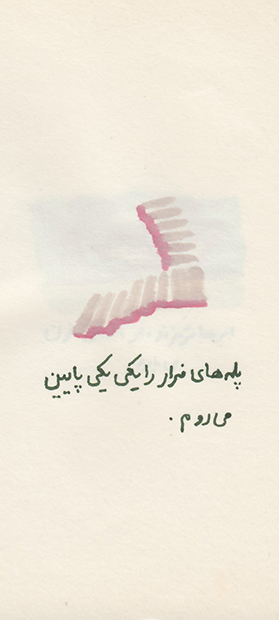 پله‌های فرار را یکی یکی پایین
می‌روم.